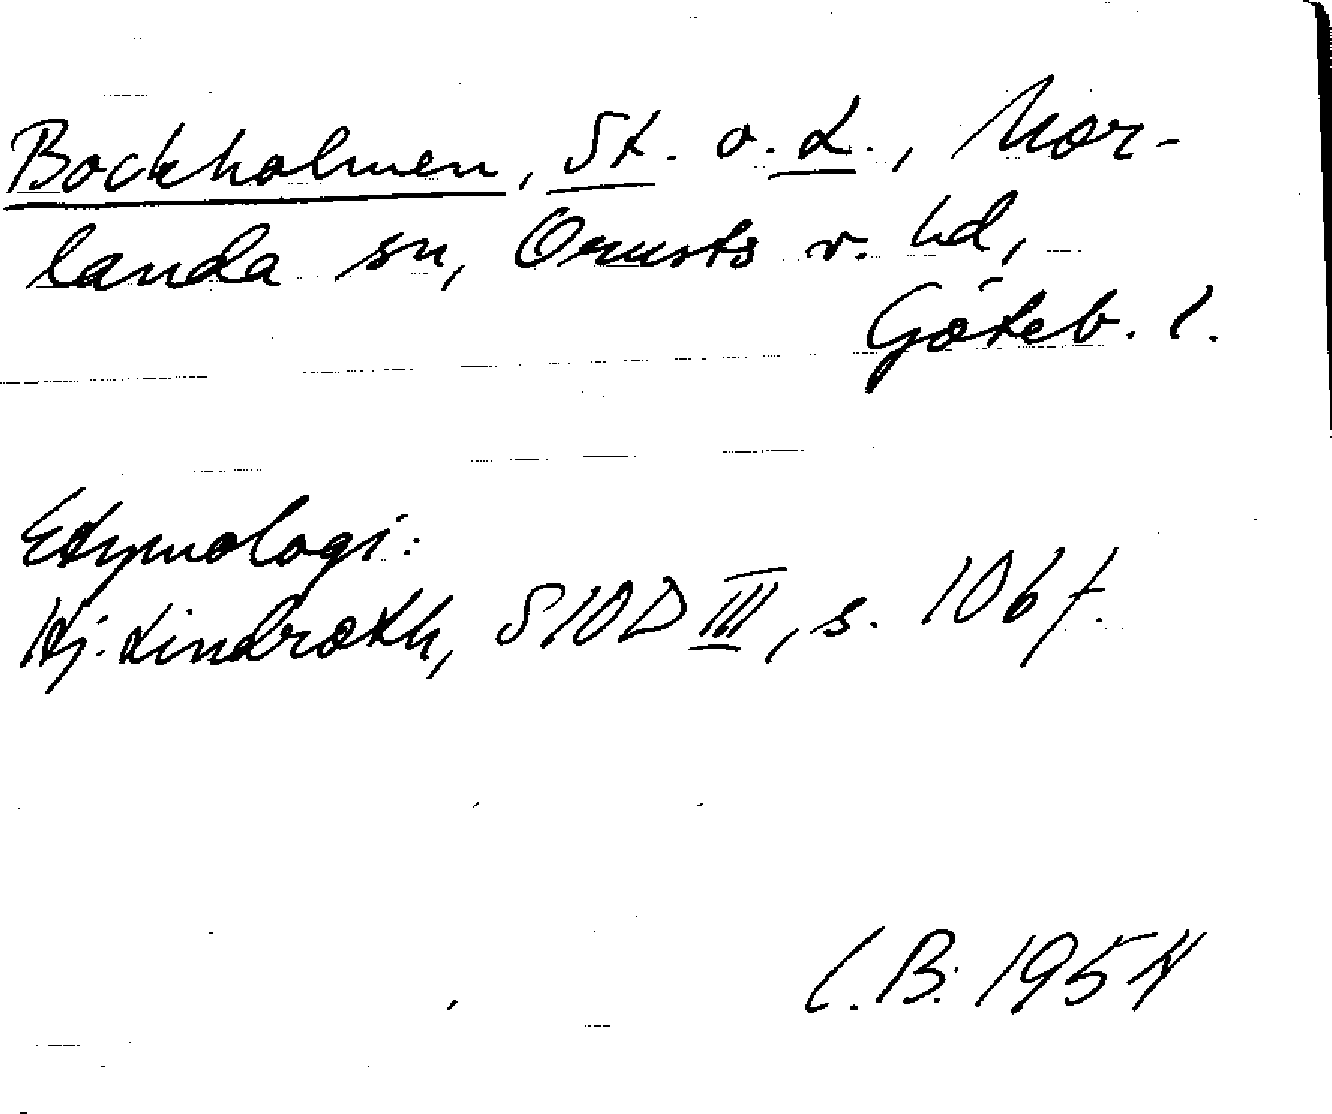 Bockholmen, St. o. L., Mor-
landa sn, Orusts v. hd,
Göteb. l.
Etymologi:
Hj. Lindroth, SIOD III, s. 106 f.
C.B. 1954